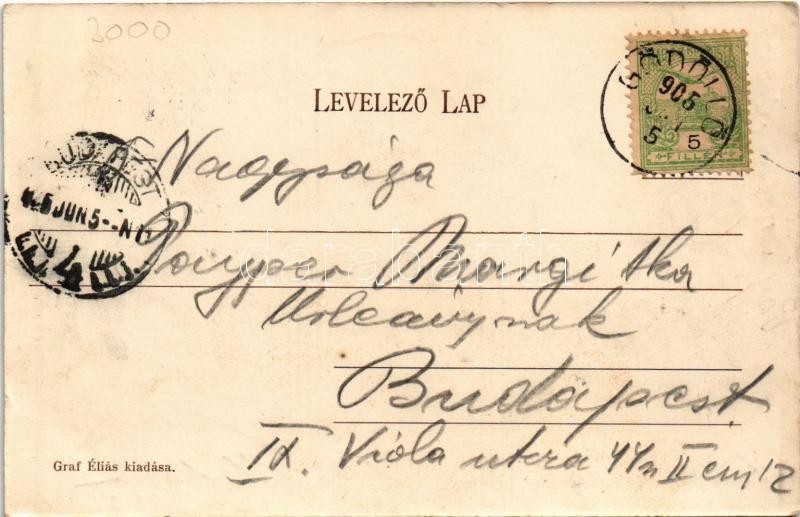 3000
LEVELEZŐ LAP
GÖDÖLLŐ
905
JUN
5
5
FILLÉR
BUDAPEST
905 JUN 5 - N 1
4
Nagysága
Margitka
Úrleánynak
Budapest
IX. Viola utcza 44/a II em 12
Graf Éliás kiadása.
darabanth